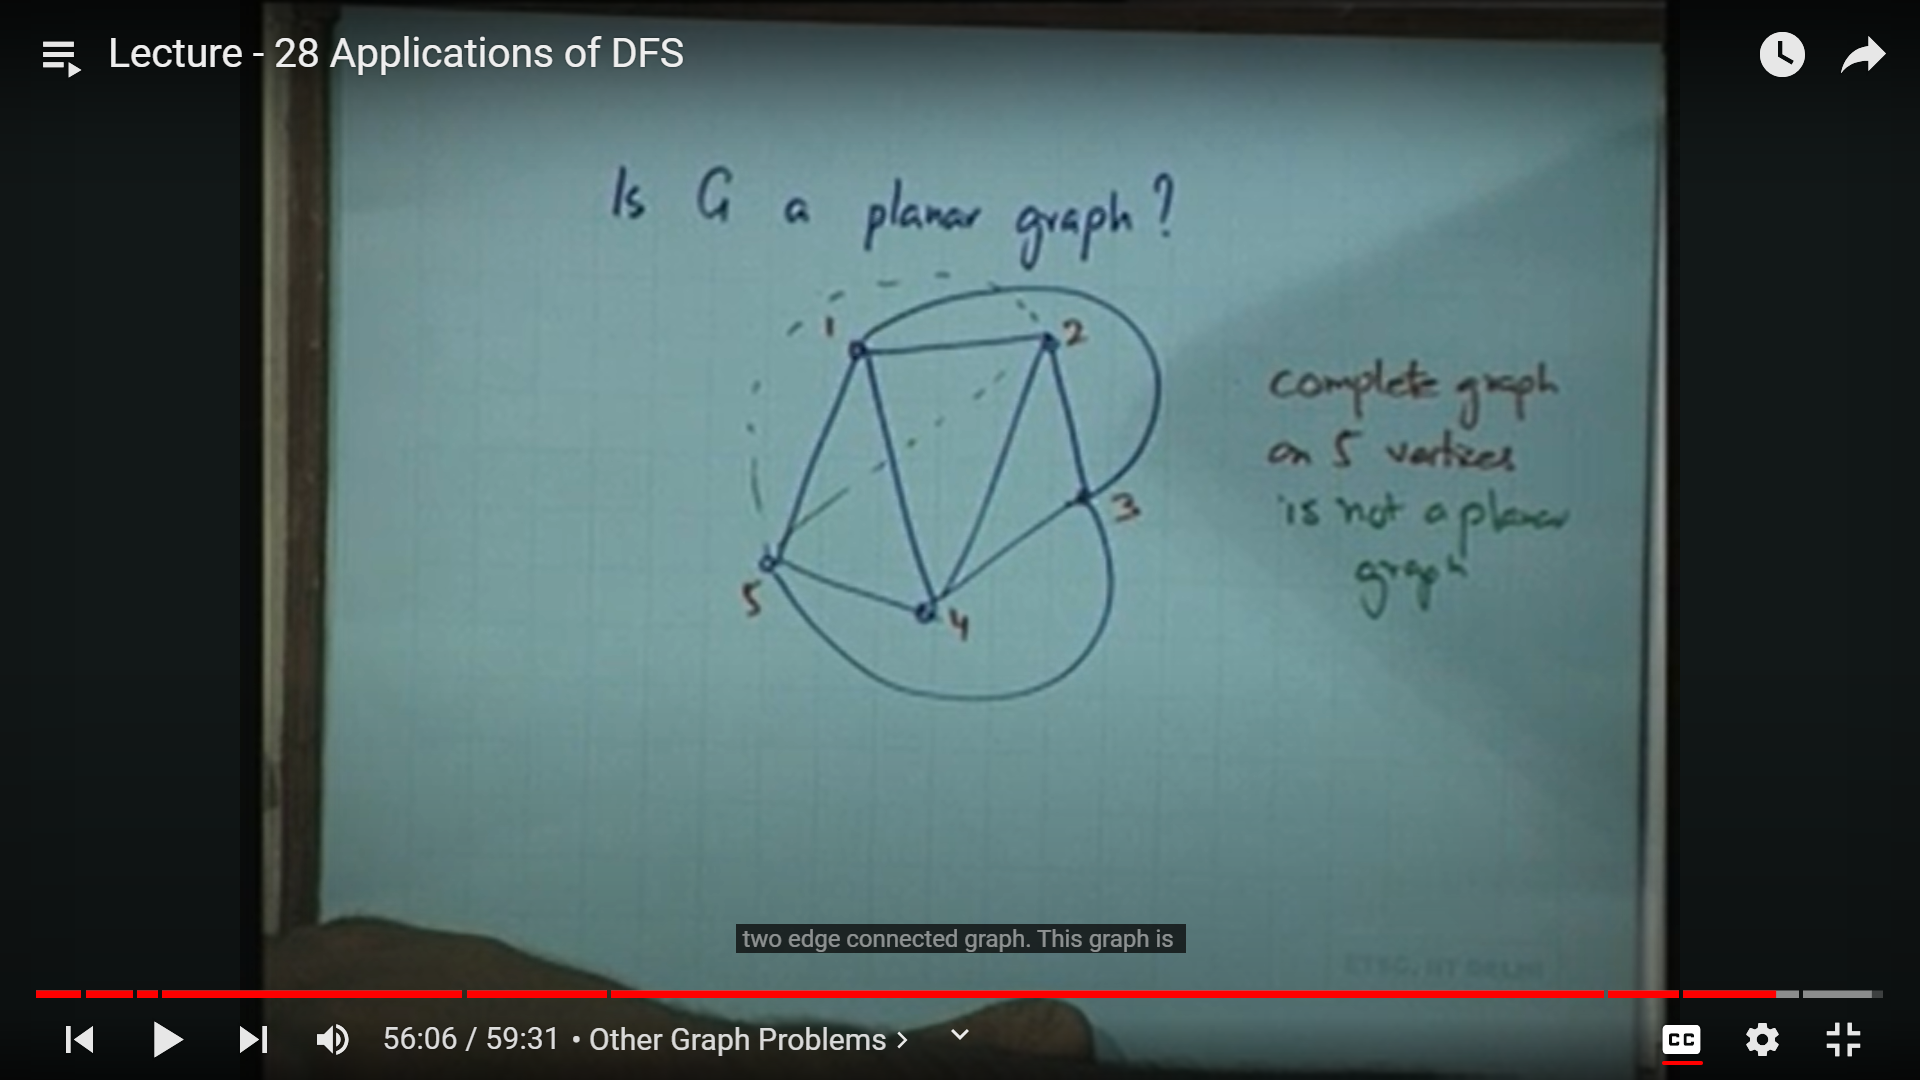 Lecture - 28 Applications of DFS
Is G a planar graph?
1
2
complete graph
on 5 vertices
3
is not a planar
graph
5
4
two edge connected graph. This graph is
ETSC, IIT DELHI
56:06 / 59:31 • Other Graph Problems >
CC